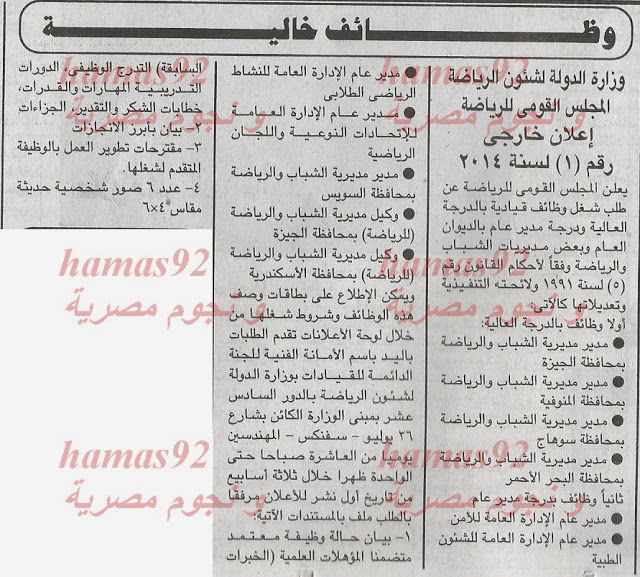 وظائف خالية
وزارة الدولة لشئون الرياضة
المجلس القومى للرياضة
إعلان خارجى
رقم (١) لسنة ٢٠١٤
يعلن المجلس القومى للرياضة عن
طلب شغل وظائف قيادية بالدرجة
العالية ودرجة مدير عام بالديوان
العام وبعض مديريات الشباب
والرياضة وفقاً لأحكام القانون رقم
(٥) لسنة ١٩٩١ ولائحته التنفيذية
وتعديلاتها كالآتى:
أولا وظائف بالدرجة العالية:
● مدير مديرية الشباب والرياضة
بمحافظة الجيزة
● مدير مديرية الشباب والرياضة
بمحافظة المنوفية
● مدير مديرية الشباب والرياضة
بمحافظة سوهاج
● مدير مديرية الشباب والرياضة
بمحافظة البحر الأحمر
ثانياً وظائف بدرجة مدير عام
● مدير عام الإدارة العامة للأمن
● مدير عام الإدارة العامة للشئون
الطبية
● مدير عام الإدارة العامة للنشاط
الرياضى الطلابى
● مدير عام الإدارة العامة
للإتحادات النوعية واللجان
الرياضية
● مدير مديرية الشباب والرياضة
بمحافظة السويس
● وكيل مديرية الشباب والرياضة
(للرياضة) بمحافظة الجيزة
● وكيل مديرية الشباب والرياضة
(للرياضة) بمحافظة الأسكندرية
ويمكن الإطلاع على بطاقات وصف
هذه الوظائف وشروط شغلها من
خلال لوحة الأعلانات تقدم الطلبات
باليد باسم الأمانة الفنية للجنة
الدائمة للقيادات بوزارة الدولة
لشئون الرياضة بالدور السادس
عشر بمبنى الوزارة الكائن بشارع
٢٦ يوليو - سفنكس - المهندسين
يومياً من العاشرة صباحا حتى
الواحدة ظهرا خلال ثلاثة أسابيع
من تاريخ أول نشر للأعلان مرفقا
بالطلب ملف بالمستندات الآتية:
١- بيان حالة وظيفة معتمد
متضمنا المؤهلات العلمية (الخبرات
السابقة) التدرج الوظيفى، الدورات
التدريبية المهارات والقدرات،
خطابات الشكر والتقدير، الجزاءات
٢- بيان بأبرز الانجازات
٣- مقترحات تطوير العمل بالوظيفة
المتقدم لشغلها.
٤- عدد ٦ صور شخصية حديثة
مقاس ٤×٦
hamas92
و نجوم مصرية
hamas92
و نجوم مصرية
hamas92
و نجوم مصرية
hamas92
و نجوم مصرية
hamas92
و نجوم مصرية
hamas92
و نجوم مصرية